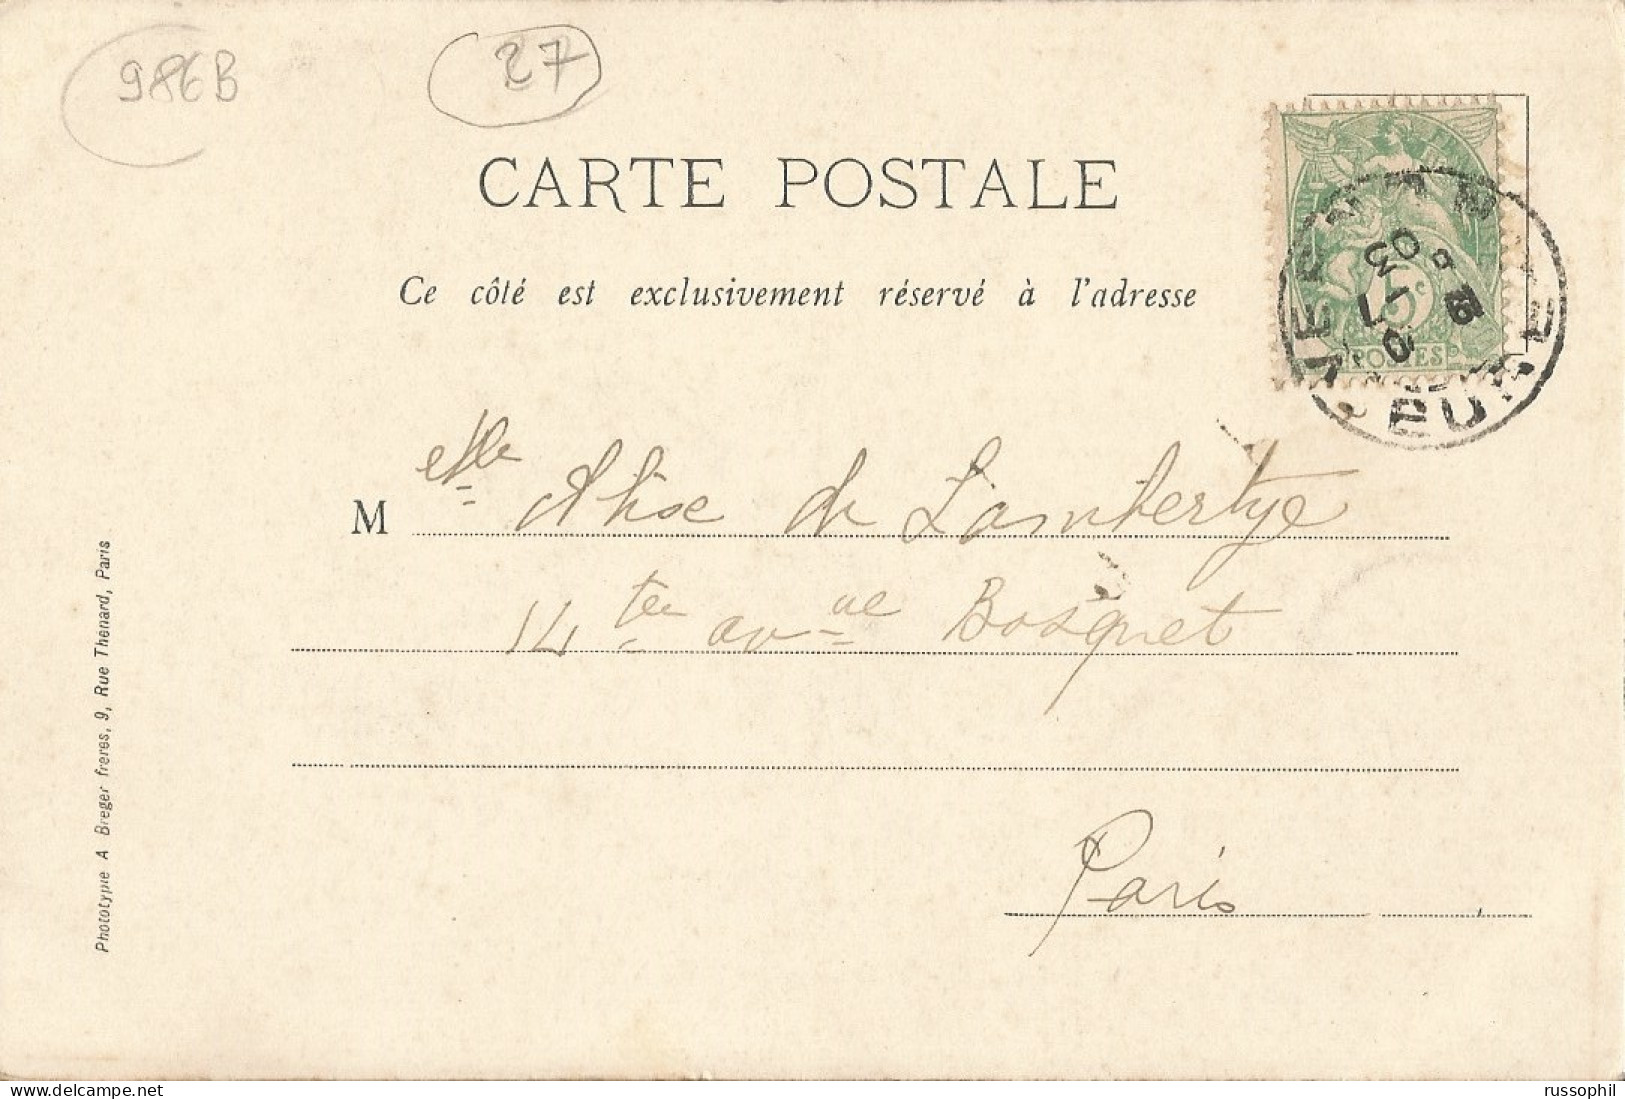 986B
27
CARTE POSTALE
Ce côté est exclusivement réservé à l'adresse
5c
POSTES
VERNON
EURE
Melle Alise de Lambertye
14 ter avnue Bosquet
Paris
Phototypie A Breger freres, 9, Rue Thénard, Paris
www.delcampe.net
russophil